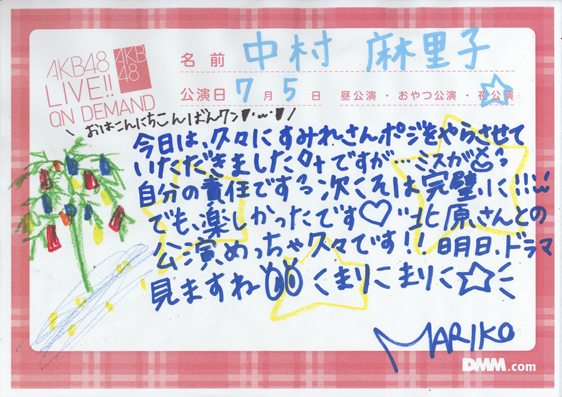 AKB48
LIVE!!
ON DEMAND
AKB
48
名前 中村 麻里子
公演日 7月5日 昼公演・おやつ公演・夜公演
おはこんにちこんばんワン
今日は、久々にすみれさんポジをやらさせて
いただきました ですが…ミスが
自分の責任です 次こそは完璧に!!
でも、楽しかったです♡北原さんとの
公演、めっちゃ久々です!!明日、ドラマ
見ますね くまりこまりく☆
MARIKO
DMM.com